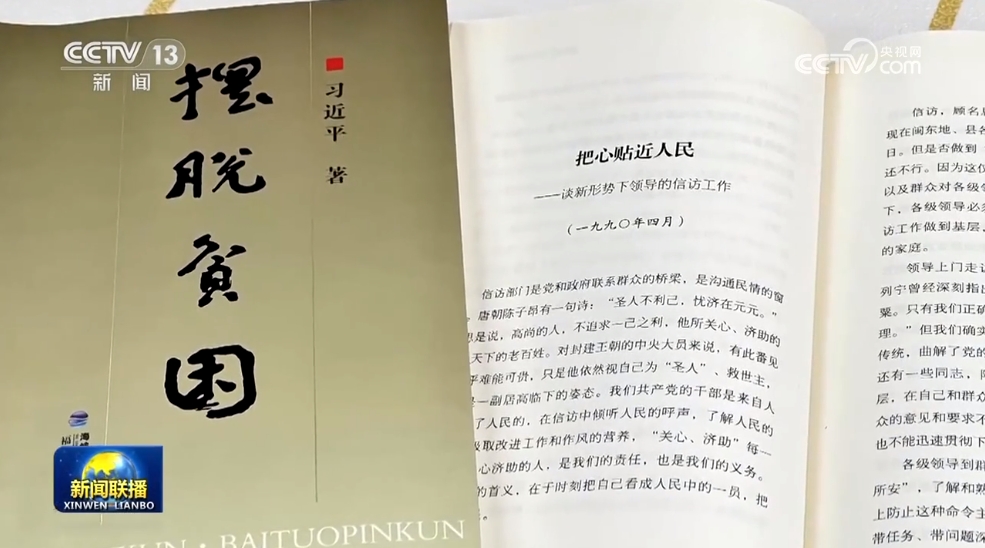 CCTV 13
新闻
摆脱贫困
习近平 著
海峡
福
BAITUOPINKUN
新闻联播
XINWEN LIANBO
把心贴近人民
——谈新形势下领导的信访工作
（一九九〇年四月）
信访部门是党和政府联系群众的桥梁，是沟通民情的窗
唐朝陈子昂有一句诗：“圣人不利己，忧济在元元。”
思是说，高尚的人，不追求一己之利，他所关心、济助的
天下的老百姓。对封建王朝的中央大员来说，有此番见
乎难能可贵，只是他依然视自己为“圣人”、救世主，
一副居高临下的姿态。我们共产党的干部是来自人
了人民的，在信访中倾听人民的呼声，了解人民的
取改进工作和作风的营养，“关心、济助”每一
心济助的人，是我们的责任，也是我们的义务。
的首义，在于时刻把自己看成人民中的一员，把
央视网
CCTV.com
信访，顾名思
现在闽东地、县各
日。但是否做到
还不行。因为这仅
以及群众对各级领
下，各级领导必须
访工作做到基层，
的家庭。
领导上门走访
列宁曾经深刻指出
粟。只有我们正确
理。”但我们确实
传统，曲解了党的
还有一些同志，
层，在自己和群众
众的意见和要求不
也不能迅速贯彻下
各级领导到群
所安”，了解和熟
上防止这种命令主
带任务、带问题深